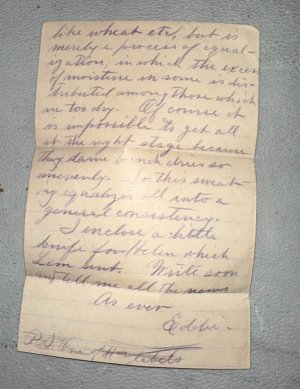 like wheat etc, but is
merely a process of equal-
ization, in which the excess
of moisture in some is dis-
tributed among those which
are too dry. Of course it
is impossible to get all
at the right stage because
they same bunch dries so
unevenly. So this sweat-
ing equalizes all into a
general consistency.
I inclose a little
knife for Helen which
Lem sent. Write soon
and tell me all the news
As ever
Eddie -
P.S. labels